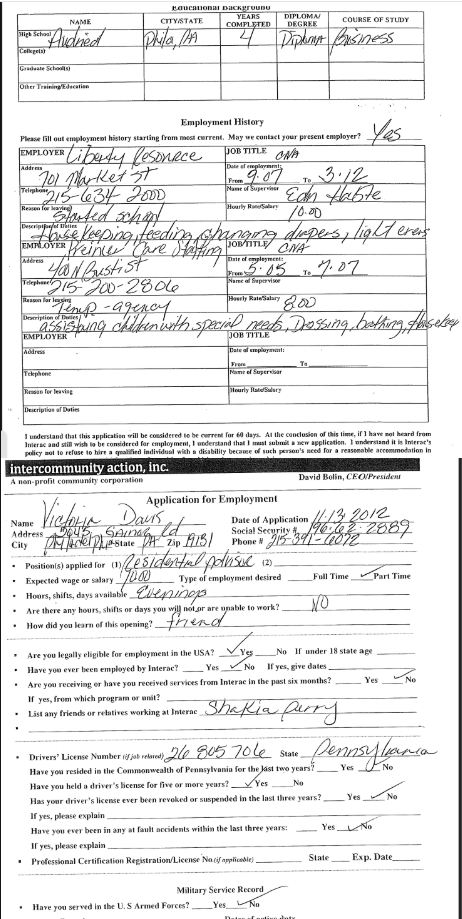 Educational Background
NAME CITY/STATE YEARS COMPLETED DIPLOMA/DEGREE COURSE OF STUDY
High School Phila, PA 4 Diploma Business
College(s)
Graduate School(s)
Other Training/Education
Employment History
Please fill out employment history starting from most current. May we contact your present employer? Yes
EMPLOYER Liberty Resorece JOB TITLE CNA
Address 701 Market St Date of employment: From 9.07 To 3.12
Telephone 215-634-2000 Name of Supervisor
Reason for leaving Started school Hourly Rate/Salary 10.00
Description of Duties House keeping, feeding, changing diapers, light
EMPLOYER Care Staffing JOB TITLE CNA
Address 400 N St Date of employment: From 5.05 To 7.07
Telephone 215-200-2806 Name of Supervisor
Reason for leaving Temp - agency Hourly Rate/Salary 8.00
Description of Duties assisting children with special needs, Dressing, bathing,
EMPLOYER JOB TITLE
Address Date of employment:
From To
Telephone Name of Supervisor
Reason for leaving Hourly Rate/Salary
Description of Duties
I understand that this application will be considered to be current for 60 days. At the conclusion of this time, if I have not heard from
Interac and still wish to be considered for employment, I understand that I must submit a new application. I understand it is Interac's
policy not to refuse to hire a qualified individual with a disability because of such person's need for a reasonable accommodation in
intercommunity action, inc.
A non-profit community corporation David Bolin, CEO/President
Application for Employment
Name Victoria Davis Date of Application 11.13.2012
Address Social Security #
City State PA Zip 19131 Phone # 215-391-6072
• Position(s) applied for (1) Residential (2)
• Expected wage or salary 10.00 Type of employment desired Full Time Part Time
• Hours, shifts, days available Evenings
• Are there any hours, shifts or days you will not or are unable to work? NO
• How did you learn of this opening? friend
• Are you legally eligible for employment in the USA? Yes No If under 18 state age
• Have you ever been employed by Interac? Yes No If yes, give dates
• Are you receiving or have you received services from Interac in the past six months? Yes No
If yes, from which program or unit?
• List any friends or relatives working at Interac Shakia Perry
•
• Drivers' License Number (if job related) 26 805 706 State Pennsylvania
Have you resided in the Commonwealth of Pennsylvania for the last two years? Yes No
Have you held a driver's license for five or more years? Yes No
Has your driver's license ever been revoked or suspended in the last three years? Yes No
If yes, please explain
Have you ever been in any at fault accidents within the last three years: Yes No
If yes, please explain
• Professional Certification Registration/License No.(if applicable) State Exp. Date
Military Service Record
• Have you served in the U. S Armed Forces? Yes No
Dates of active duty